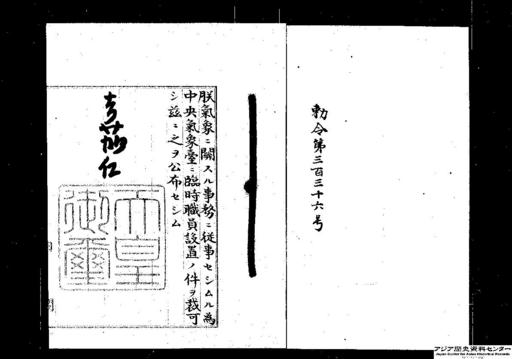 勅令第三百三十六号
朕氣象ニ關スル事務ニ從事セシムル為
中央氣象臺ニ臨時職員設置ノ件ヲ裁可
シ茲ニ之ヲ公布セシム
嘉仁
天皇
御璽
アジア歴史資料センター
Japan Center for Asian Historical Records